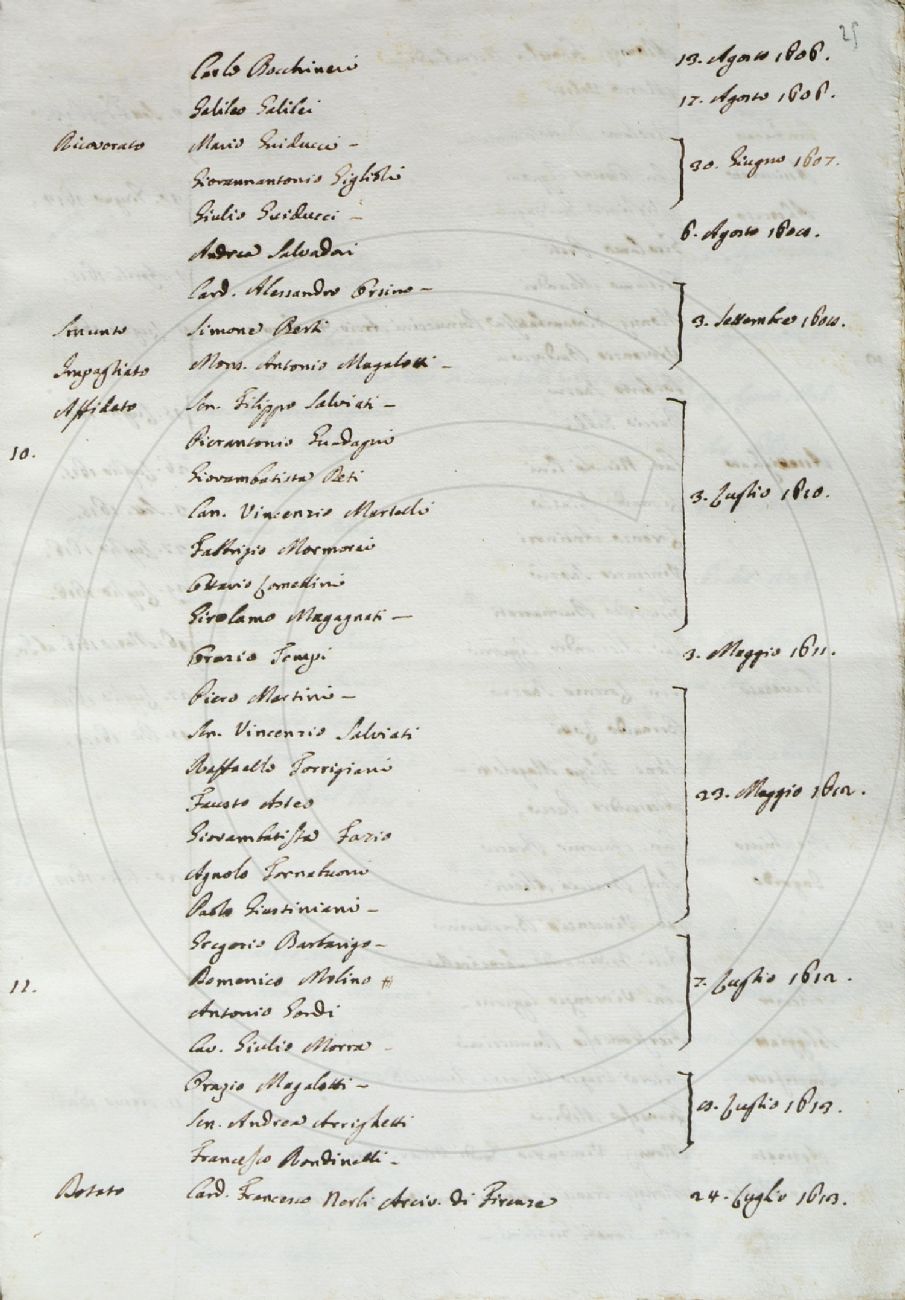 25
Carlo Bocchineri 13. Agosto 1606.
Galileo Galilei 17. Agosto 1606.
Ricovorato Mario Guiducci –
Giovannantonio Giglioli 30. Giugno 1607.
Giulio Guiducci –
Andrea Salvadori 6. Agosto 1608.
Card. Alessandro Orsino –
Senunto Simone Berti 3. Settembre 1608.
Impagliato Mons. Antonio Magalotti –
Affidato Sen. Filippo Salviati –
10. Pierantonio Guadagni
Giovambatista Reti
Can. Vincenzio Martelli 3. Luglio 1610.
Fabbrizio Mormorai
Ottavio Comellini
Girolamo Magagnati –
Orazio Tempi 3. Maggio 1611.
Piero Martini –
Sen. Vincenzio Salviati
Raffaello Torrigiani
Fausto Asteo 23. Maggio 1612.
Giovambatista Fazio
Agnolo Tornabuoni
Paolo Giustiniani –
Gregorio Barbarigo –
11. Domenico Molino # 7. Luglio 1612.
Antonio Gondi
Cav. Giulio Morra –
Orazio Magalotti –
Sen. Andrea Arrighetti 8. Luglio 1613.
Francesco Rondinelli –
Botato Card. Francesco Nerli Arciv. di Firenze 24. Luglio 1613.